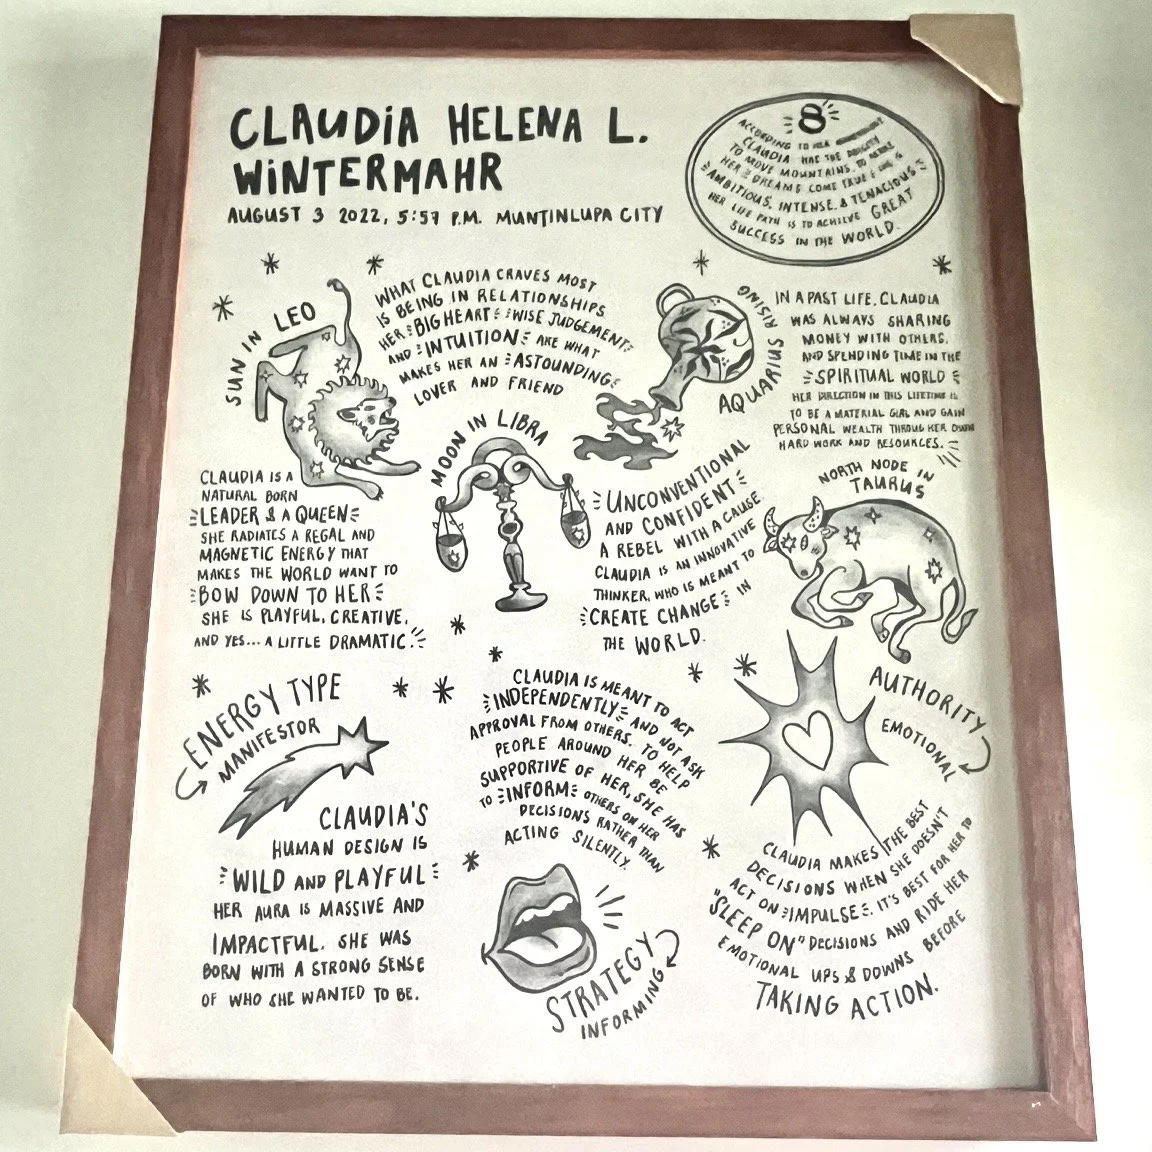 CLAUDIA HELENA L.
WINTERMAHR
AUGUST 3 2022, 5:57 P.M. MUNTINLUPA CITY
8
ACCORDING TO HER
CLAUDIA HAS THE
TO MOVE MOUNTAINS, TO MAKE
HER DREAMS COME TRUE
AMBITIOUS, INTENSE, & TENACIOUS.
HER LIFE PATH IS TO ACHIEVE GREAT
SUCCESS IN THE WORLD.
SUN IN LEO
CLAUDIA IS A
NATURAL BORN
LEADER & A QUEEN
SHE RADIATES A REGAL AND
MAGNETIC ENERGY THAT
MAKES THE WORLD WANT TO
BOW DOWN TO HER
SHE IS PLAYFUL, CREATIVE,
AND YES... A LITTLE DRAMATIC.
WHAT CLAUDIA CRAVES MOST
IS BEING IN RELATIONSHIPS
HER BIG HEART WISE JUDGEMENT
AND INTUITION ARE WHAT
MAKES HER AN ASTOUNDING
LOVER AND FRIEND
MOON IN LIBRA
AQUARIUS RISING
UNCONVENTIONAL
AND CONFIDENT
A REBEL WITH A CAUSE
CLAUDIA IS AN INNOVATIVE
THINKER, WHO IS MEANT TO
CREATE CHANGE IN
THE WORLD.
IN A PAST LIFE, CLAUDIA
WAS ALWAYS SHARING
MONEY WITH OTHERS,
AND SPENDING TIME IN THE
SPIRITUAL WORLD
HER DIRECTION IN THIS LIFETIME IS
TO BE A MATERIAL GIRL AND GAIN
PERSONAL WEALTH THROUG HER OWN
HARD WORK AND RESOURCES.
NORTH NODE IN
TAURUS
ENERGY TYPE
MANIFESTOR
CLAUDIA'S
HUMAN DESIGN IS
WILD AND PLAYFUL
HER AURA IS MASSIVE AND
IMPACTFUL. SHE WAS
BORN WITH A STRONG SENSE
OF WHO SHE WANTED TO BE.
CLAUDIA IS MEANT TO ACT
INDEPENDENTLY AND NOT ASK
APPROVAL FROM OTHERS. TO HELP
PEOPLE AROUND HER BE
SUPPORTIVE OF HER, SHE HAS
TO INFORM OTHERS ON HER
DECISIONS RATHER THAN
ACTING SILENTLY.
STRATEGY
INFORMING
AUTHORITY
EMOTIONAL
CLAUDIA MAKES THE BEST
DECISIONS WHEN SHE DOESN'T
ACT ON IMPULSE. IT'S BEST FOR HER TO
"SLEEP ON" DECISIONS AND RIDE HER
EMOTIONAL UPS & DOWNS BEFORE
TAKING ACTION.